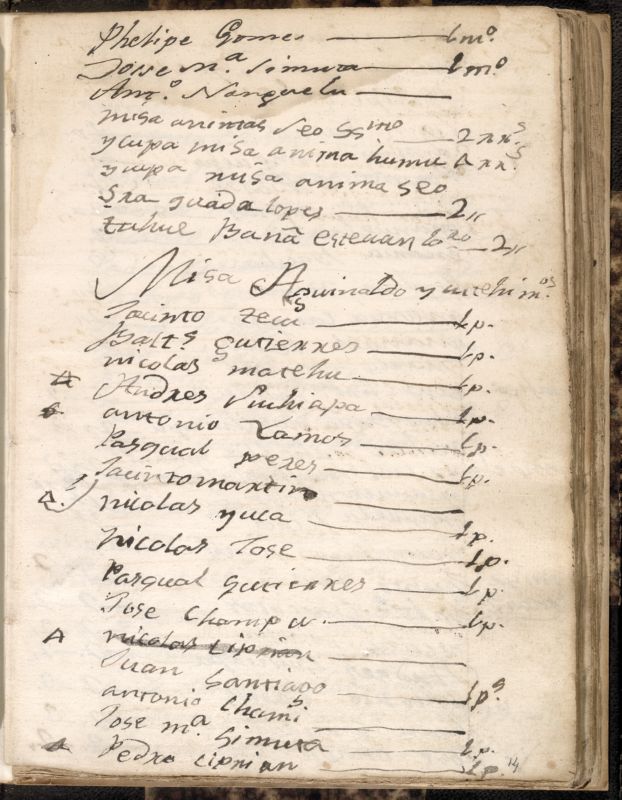 Phelipe Gomes — 1 mº.
Jose m.ª Simuta — 1 mº
Ant.º Nanguelu —
misa animas seo SSmo — 2 rr.s
ycupa misa anima humu 4 rr.s
ycupa misa anima seo
Sra guadalopes — 2,,
tahue Bana estevan — 2,,
Misa Aguinaldo y utehi m.os
Jacinto — 1 p.
Balts gutierres — 1 p.
nicolas matehu — 1 p.
Andres Suchiapa — 1 p.
antonio Lamos — 1 p.
Pasqual peres — 1 p.
Jacinto martin —
nicolas yuca — 1 p.
Nicolas Jose — 1 p.
Pasqual gutierres — 1 p.
Jose Champa — 1 p.
nicolas ciprian —
Juan Santiago — 1 p.s
antonio Chamsi —
Jose m.ª Simuta — 1 p.
Pedro ciprian — 1 p.
14